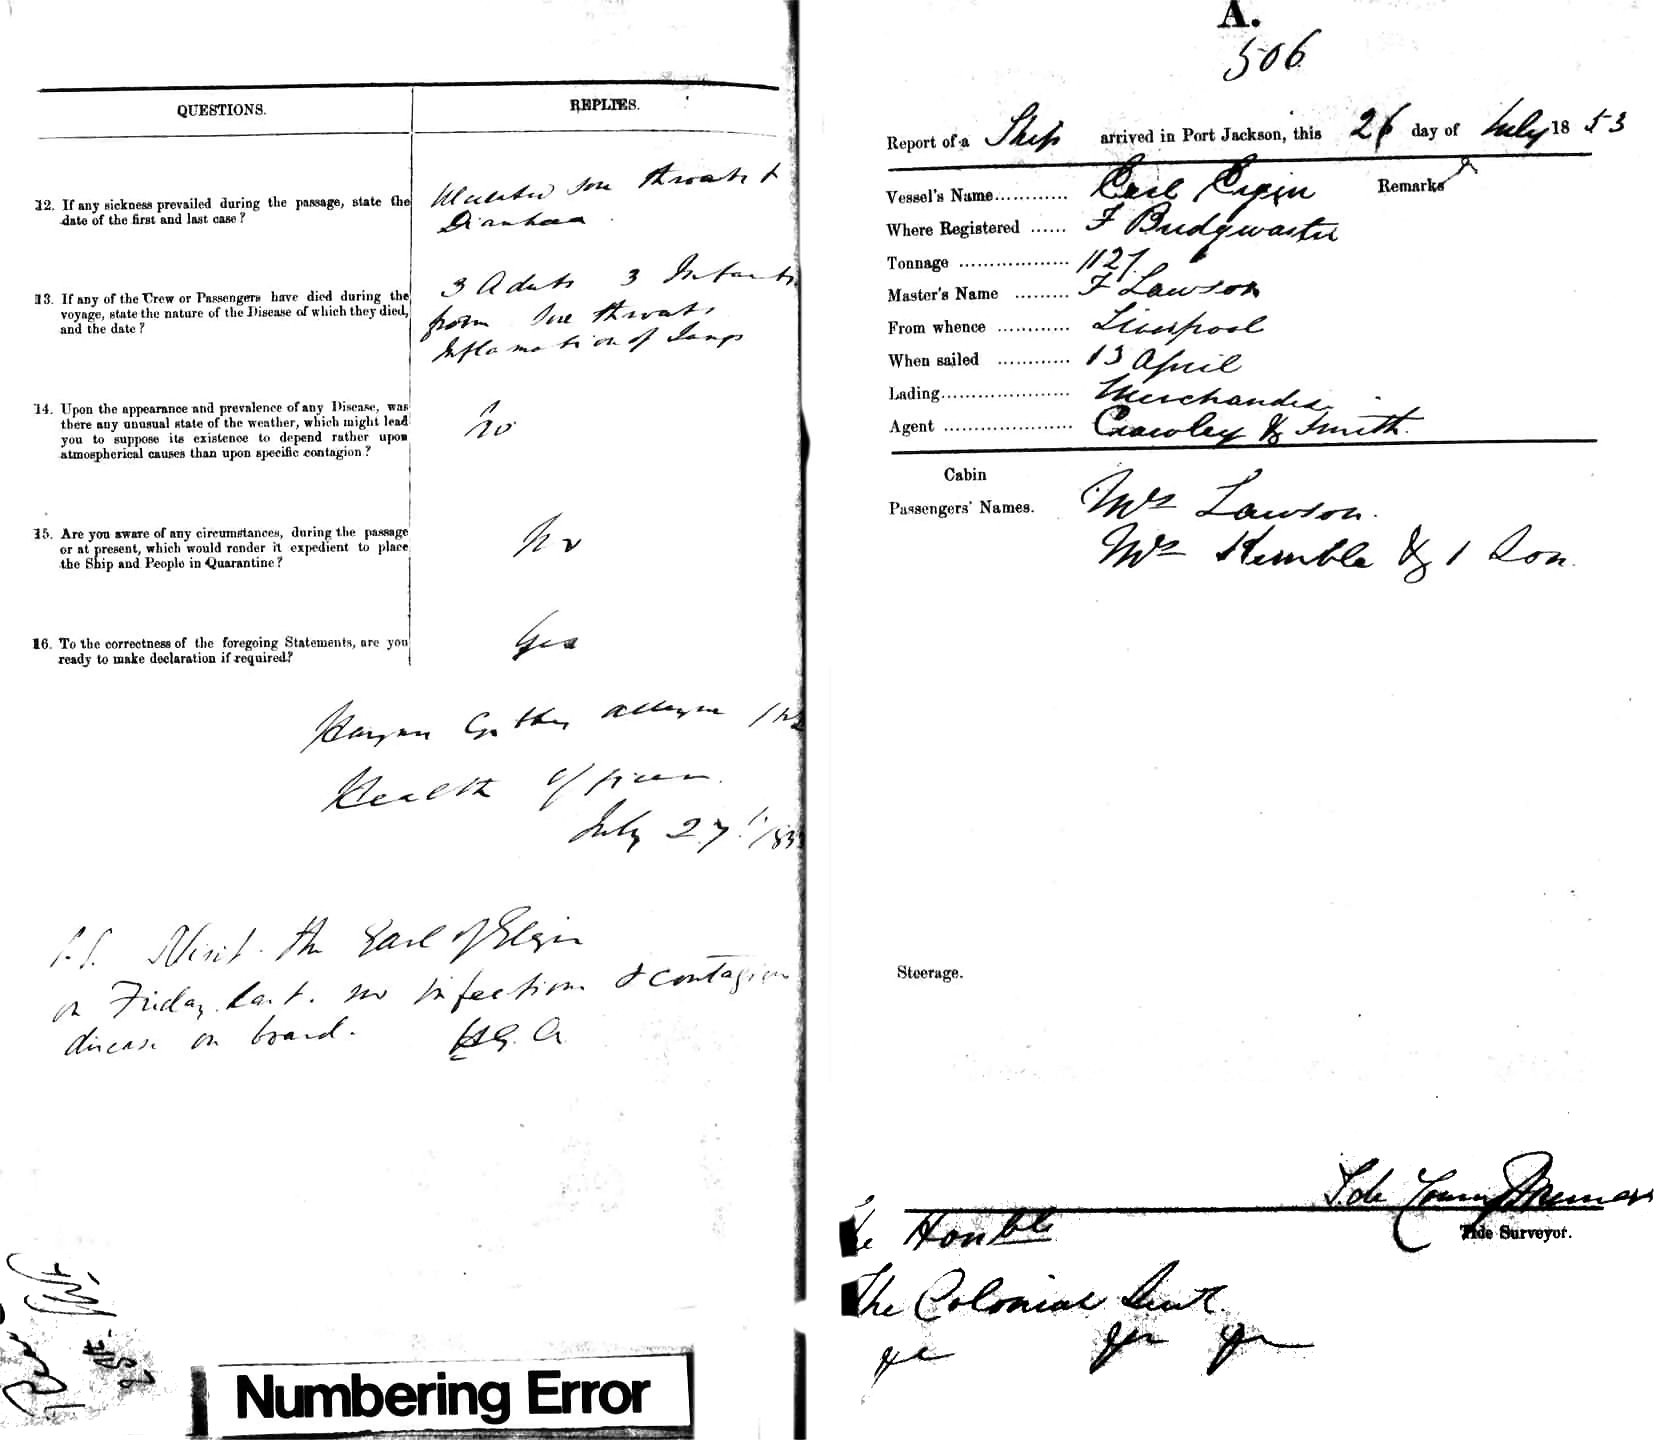 QUESTIONS.
REPLIES.
12. If any sickness prevailed during the passage, state the
date of the first and last case?
sore throats &
Diarrhea
13. If any of the Crew or Passengers have died during the
voyage, state the nature of the Disease of which they died,
and the date?
3 Adults 3 Infants
from Sore throats
Inflamation of Lungs
14. Upon the appearance and prevalence of any Disease, was
there any unusual state of the weather, which might lead
you to suppose its existence to depend rather upon
atmospherical causes than upon specific contagion?
No
15. Are you aware of any circumstances, during the passage
or at present, which would render it expedient to place
the Ship and People in Quarantine?
No
16. To the correctness of the foregoing Statements, are you
ready to make declaration if required?
Yes
Health Officer
July 27th
P.S. Visit the Earl of Elgin
on Friday last. no infection & contagion
disease on board. H.G.A.
Numbering Error
A.
506
Report of a Ship arrived in Port Jackson, this 26 day of July 1853
Vessel's Name............ Earl Elgin Remarks
Where Registered ...... F Bridgwater
Tonnage .................. 1127
Master's Name ......... F Lawson
From whence ............ Liverpool
When sailed ............ 13 April
Lading..................... Merchandise
Agent ..................... Crawley & Smith.
Cabin
Passengers' Names.
Mrs Lawson.
Mrs Kemble & 1 Son.
Steerage.
Tide Surveyor.
Honble
The Colonial Secret.